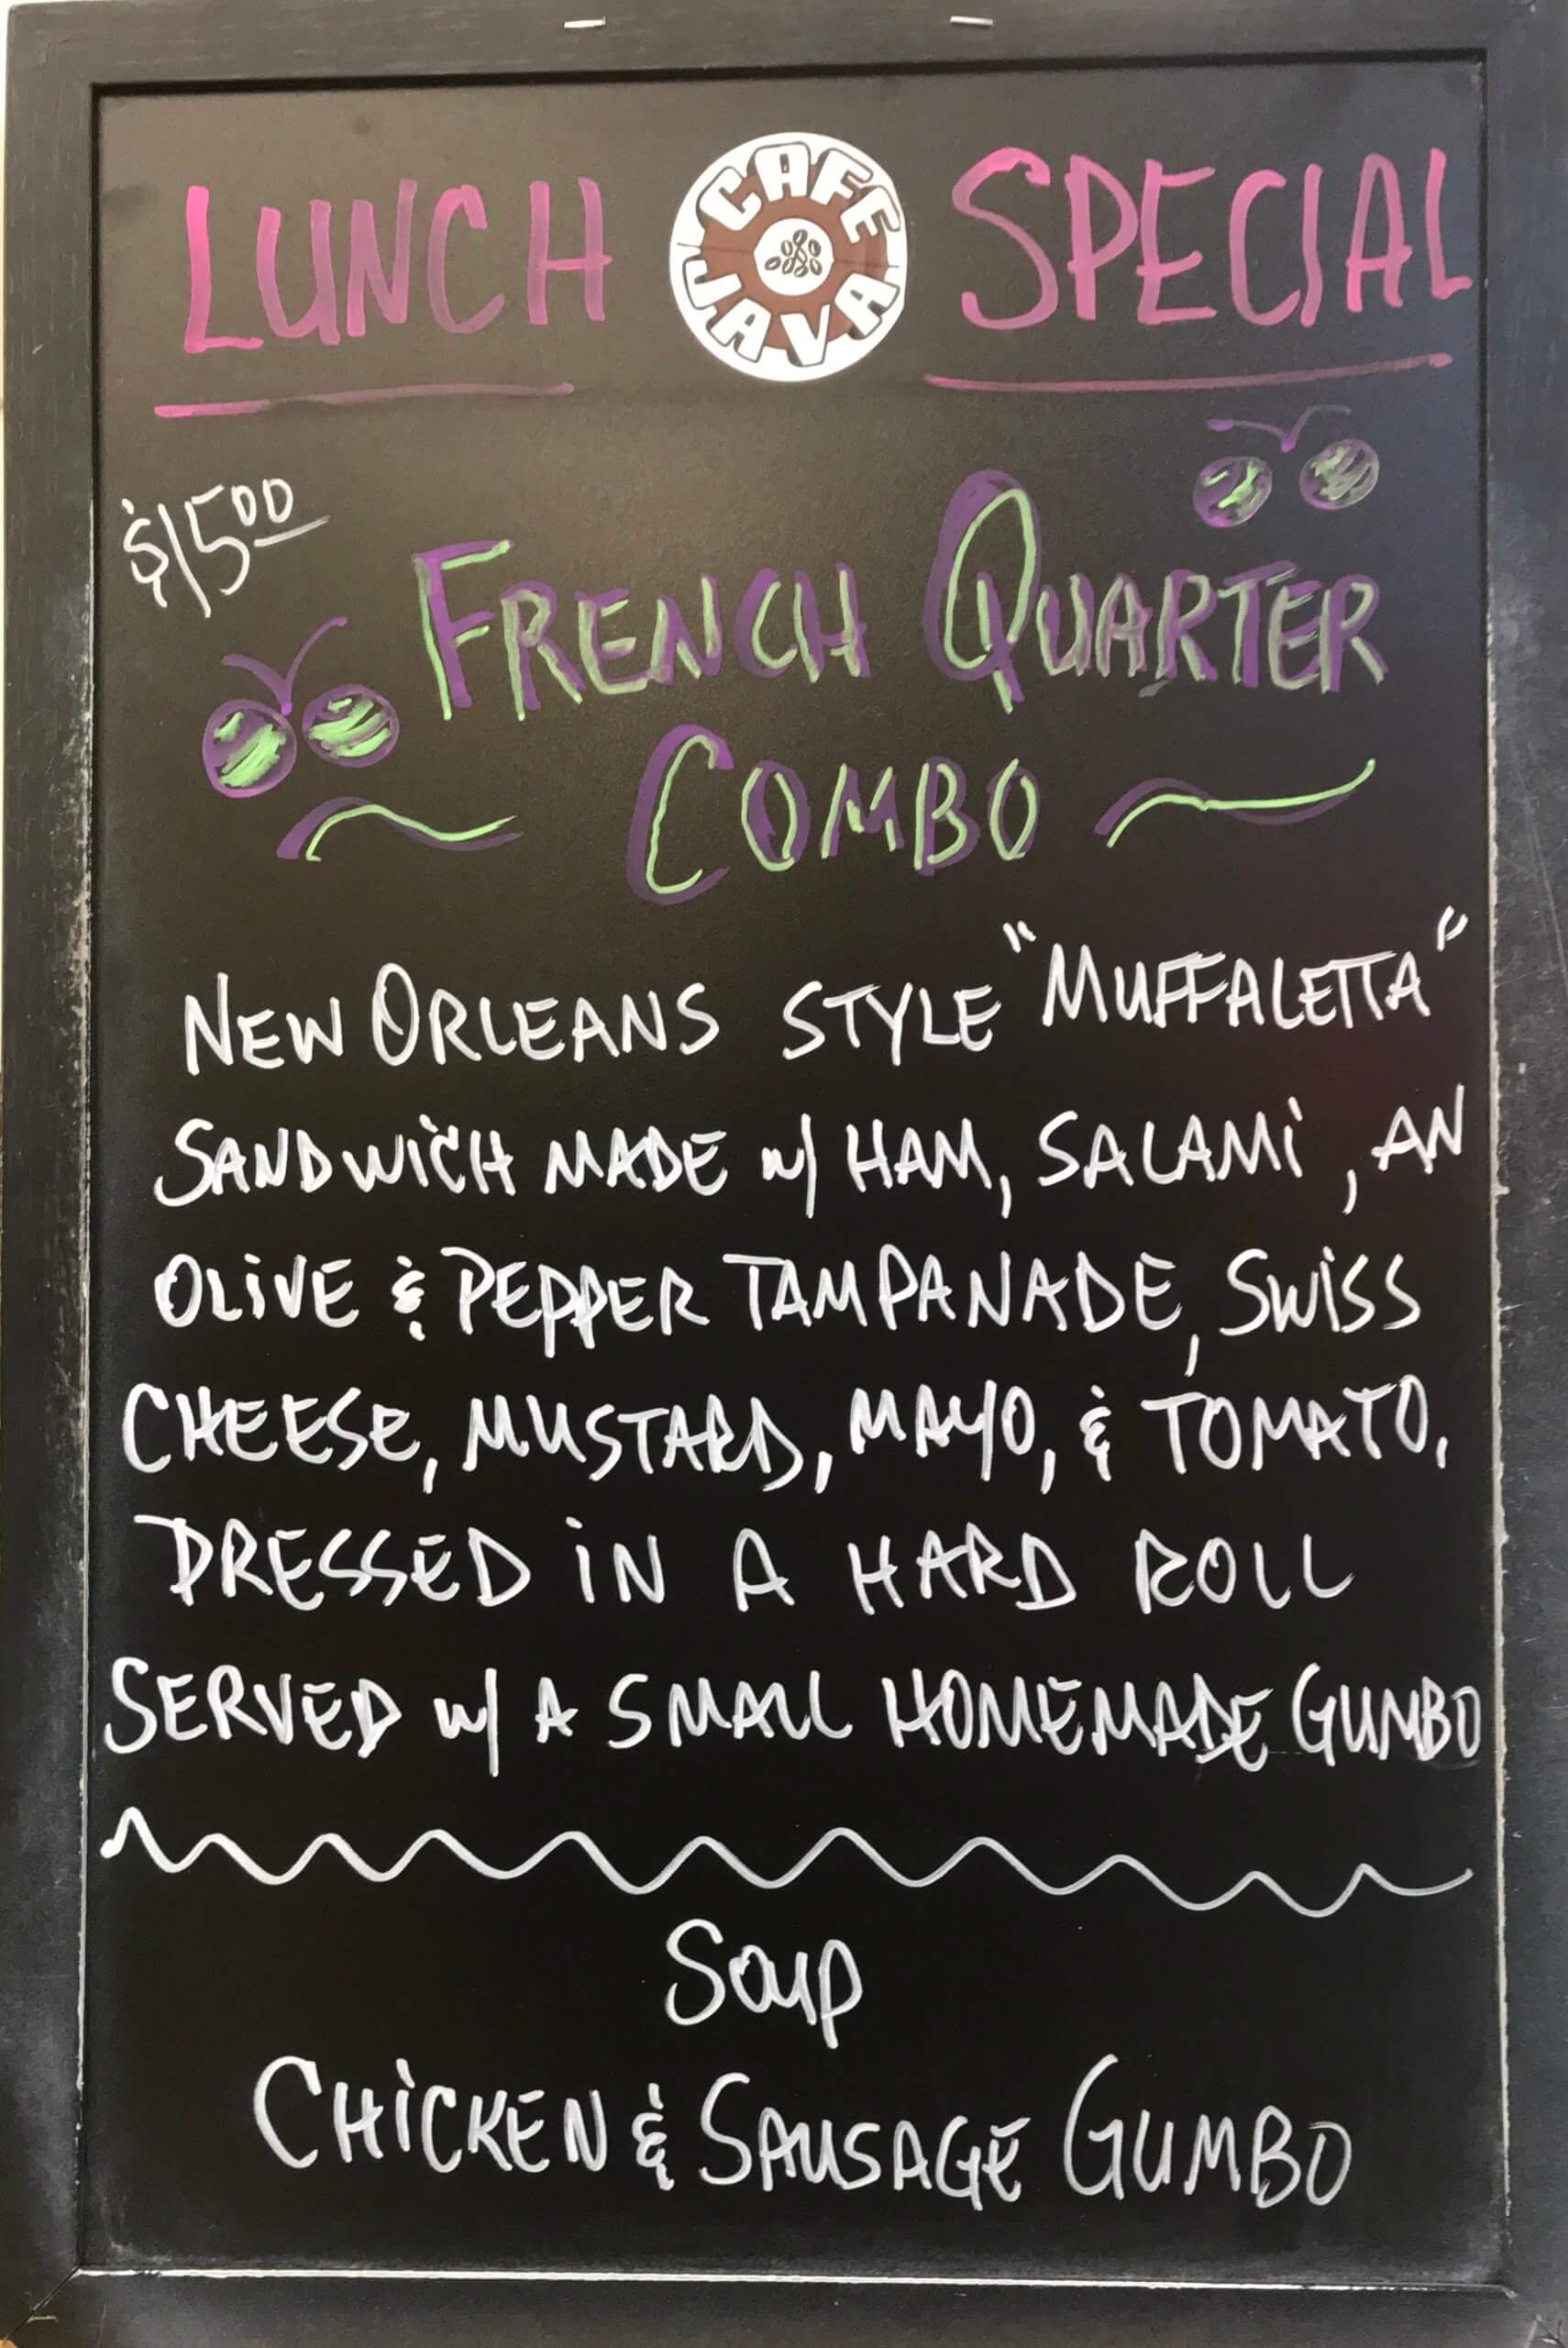 LUNCH CAFE JAVA SPECIAL
$15.00
FRENCH QUARTER
COMBO
NEW ORLEANS STYLE "MUFFALETTA"
SANDWICH MADE w/ HAM, SALAMI, AN
OLIVE & PEPPER TAMPANADE, SWISS
CHEESE, MUSTARD, MAYO, & TOMATO,
DRESSED IN A HARD ROLL
SERVED w/ A SMALL HOMEMADE GUMBO
SOUP
CHICKEN & SAUSAGE GUMBO